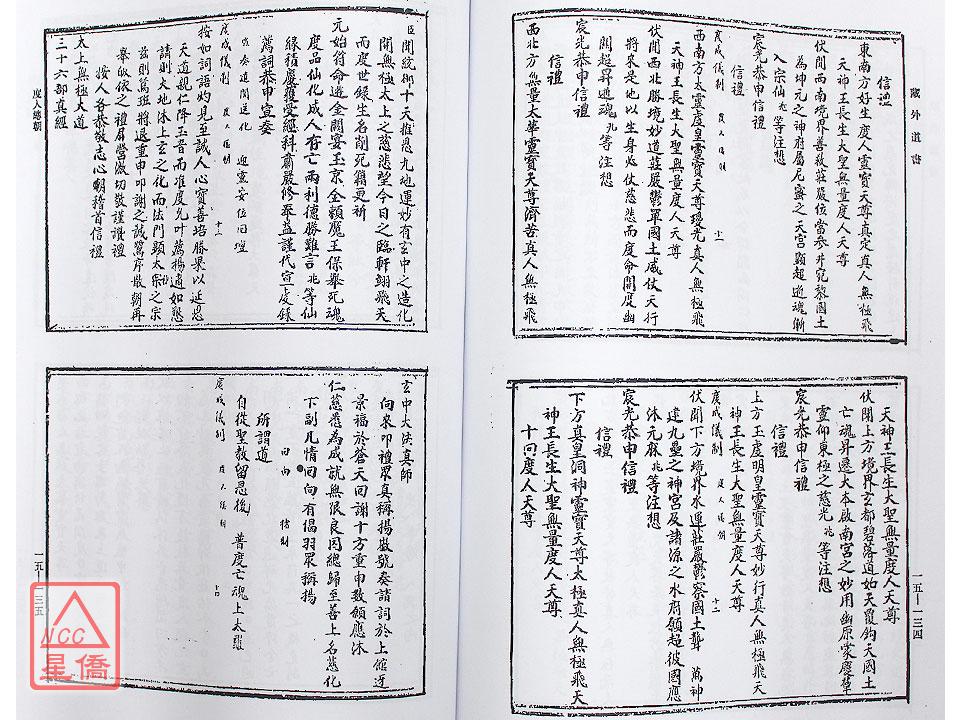 藏外道書
信禮
東南方好生度人靈寶天尊真定真人無極飛
天神王長生大聖無量度人天尊
伏聞西南境界善救莊嚴位當參井究黎國土
為坤元之神府屬尼靈之天宮顯超逝魂漸
入宗仙 等注想
宸光恭申信禮
信禮
廣成儀制 度人儀制 十一
西南方太靈虛皇靈寶天尊瓊光真人無極飛
天神王長生大聖無量度人天尊
伏聞西北勝境妙道莊嚴鬱單國土咸仗天行
將來是他以生身必仗慈悲而度命開度幽
關超昇逝魂 等注想
宸光恭申信禮
信禮
西北方無量太華靈寶天尊濟苦真人無極飛
天神王長生大聖無量度人天尊
伏聞上方境界玄都碧落道如天覆鈞天國土
亡魂昇遷大本啟南宮之妙用幽原蒙
靈仰東極之慈光 等注想
宸光恭申信禮
信禮
上方玉虛明皇靈寶天尊妙行真人無極飛天
神王長生大聖無量度人天尊
廣成儀制 度人儀制 十二
伏聞下方境界水連莊嚴鬱察國土聾 萬神
達九壘之神宮及諸源之水府願超彼國應
沐元庥 等注想
宸光恭申信禮
信禮
下方真皇洞神靈寶天尊太極真人無極飛天
神王長生大聖無量度人天尊
十回度人天尊
一五—一三四
臣聞統御十天推惠九地運妙有玄中之造化
開無極太上之慈悲望今日之臨軒翱飛天
而度世錄生名削死籍更祈
元始符命遊金闕宴玉京金顆魔王保舉死魂
度品仙化咸人存亡兩利德勝難言 等仙
緣積慶獲受經科肅嚴修奉益謹代宣 錄
薦詞恭申宣奏
廣成儀制 度人儀制 十三
按如詞語灼見至誠人心寶善培勝果以延恩
天道親仁降玉音而准度允叶薦揚適如懇
請則大地沐上玄之化而法門顯太宗之宗
茲則篤班將退重申叩謝之誠鶩序嚴朝再
舉皈依之禮具營微切敬謹讚禮
按人各恭敬志心朝稽首信禮
太上無極大道
三十六部真經
度人總朝
玄中大法真師
向來叩禮眾真稱揚徽號奏請詞於上
景福於蒼天回謝十方重申數願應沐
仁慈悉為成就無俍良因總歸至善上名慈化
下副凡情回向有偈羽眾稱揚
回向
所謂道
自從聖教留恩後 普度亡魂上大羅
廣成儀制 度人儀制 十四
一五—一三五
NCC
星僑